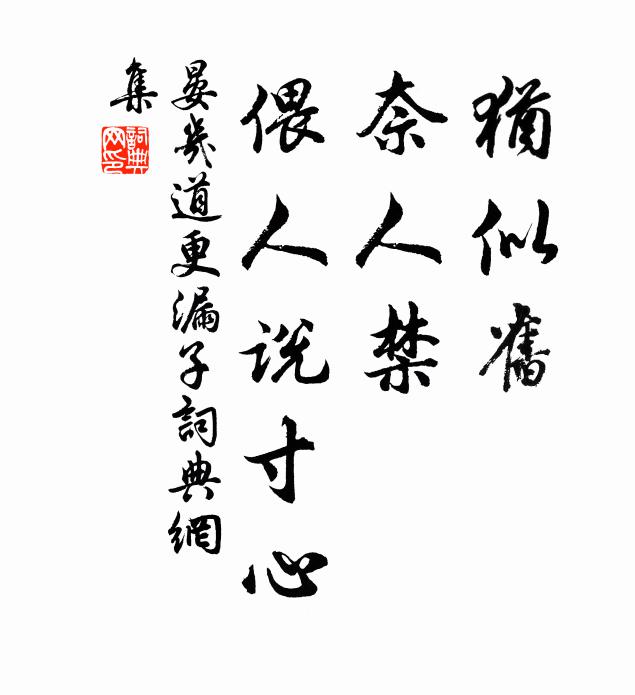 猶似舊
奈人禁
偎人説寸心
晏幾道更漏子詞典網
集
詞典网印